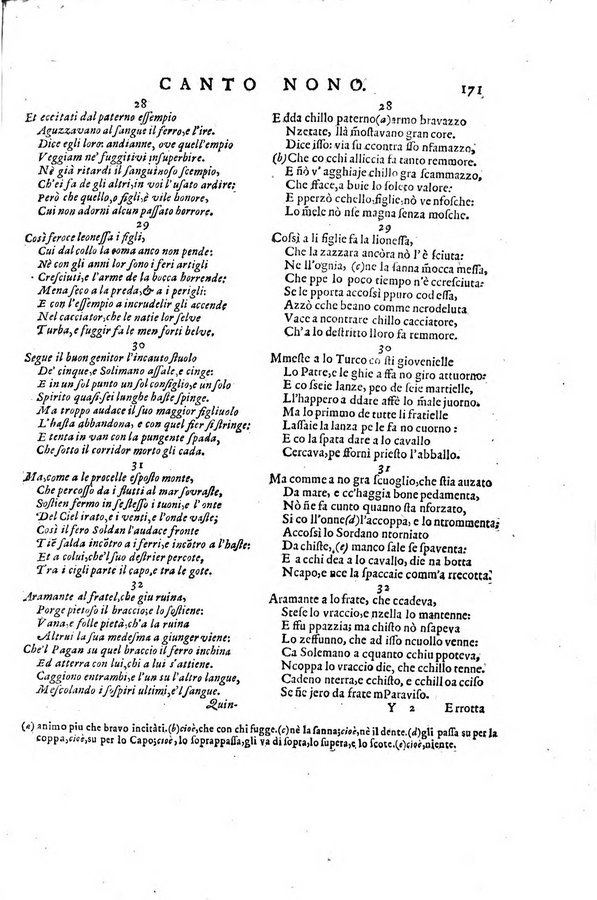 CANTO NONO. 171
28
Et eccitati dal paterno eſſempio
Aguzzavano al ſangue il ferro, e l'ire.
Dice egli loro: andianne, ove quell'empio
Veggiam ne' fuggitivi inſuperbire.
Nè già ritardi il ſanguinoſo ſcempio,
Ch'ei fa de gli altri, in voi l'uſato ardire:
Però che quello, o figli, è vile honore,
Cui non adorni alcun paſſato horrore.
29
Così feroce leoneſſa i figli,
Cui dal collo la coma anco non pende:
Nè con gli anni lor ſono i feri artigli
Creſciuti, e l'arme de la bocca horrende:
Mena ſeco a la preda, & a i perigli:
E con l'eſſempio a incrudelir gli accende
Nel cacciator, che le natie lor ſelve
Turba, e fuggir fa le men forti belve.
30
Segue il buon genitor l'incauto ſtuolo
De' cinque, e Solimano aſſale, e cinge:
E in un ſol punto un ſol conſiglio, e un ſolo
Spirito quaſi, ſei lunghe haſte ſpinge.
Ma troppo audace il ſuo maggior figliuolo
L'haſta abbandona, e con quel fier ſi ſtringe:
E tenta in van con la pungente ſpada,
Che ſotto il corridor morto gli cada.
31
Ma, come a le procelle eſpoſto monte,
Che percoſſo da i flutti al mar ſovraſte,
Soſtien fermo in ſe ſteſſo i tuoni, e l'onte
Del Ciel irato, e i venti, e l'onde vaſte;
Così il fero Soldan l'audace fronte
Tiẽ ſalda incõtro a i ferri, e incõtro a l'haſte:
Et a colui, che'l ſuo deſtrier percote,
Tra i cigli parte il capo, e tra le gote.
32
Aramante al fratel, che giu ruina,
Porge pietoſo il braccio, e lo ſoſtiene:
Vana, e folle pietà, ch'a la ruina
Altrui la ſua medeſma a giunger viene:
Che'l Pagan su quel braccio il ferro inchina
Ed atterra con lui, chi a lui s'attiene.
Caggiono entrambi, e l'un su l'altro langue,
Meſcolando i ſoſpiri ultimi, e'l ſangue.
Quin-
28
E dda chillo paterno (a) armo bravazzo
Nzetate, llà moſtavano gran core.
Dice iſſo: via ſu contra iſſo nfamazzo,
(b) Che co cchi alliccia fa tanto remmore.
E nõ v' agghiaje chillo gra ſcammazzo,
Che fface, a buie lo ſoleto valore:
E pperzò cchello, figlie, nõ ve nfoſche:
Lo mmale nõ nſe magna ſenza moſche.
29
Coſſì a li figlie fa la lioneſſa,
Che la zazzara ancòra nõ l'è ſciuta:
Ne ll'ognia, (c) ne la ſanna m̃occa meſſa,
Che ppe lo poco tiempo n'è ccreſciuta:
Se le pporta accoſsì ppuro cod eſſa,
Azzò cche beano comme nerodeluta
Vace a ncontrare chillo cacciatore,
Ch'a lo deſtritto lloro fa remmore.
30
Mmeſte a lo Turco co ſti giovenielle
Lo Patre, e le ghie a ffa no giro attuorno:
E co ſseie lanze, peo de ſeie martielle,
Ll'happero a ddare affè lo male juorno.
Ma lo primmo de tutte li fratielle
Laſſaie la lanza pe le fa no cuorno:
E co la ſpata dare a lo cavallo
Cercava, pe sforni prieſto l'abballo.
31
Ma comme a no gra ſcuoglio, che ſtia auzato
Da mare, e cc'haggia bone pedamenta,
Nõ ñe fa cunto quanno ſta nforzato,
Si co ll'onne (d) l'accoppa, e lo ntrommenta:
Accoſsì lo Sordano ntorniato
Da chiſte, (e) manco ſale ſe ſpaventa:
E a cchi dea a lo cavallo, die na botta
Ncapo, e nce la ſpaccaie comm'a rrecotta.
32
Aramante a lo frate, che ccadeva,
Steſe lo vraccio, e nzella lo mantenne:
E ſfu ppazzia; ma chiſto nõ nſapeva
Lo zeffunno, che ad iſſo ncuollo venne:
Ca Solemano a cquanto cchiu ppoteva,
Ncoppa lo vraccio die, che cchillo tenne.
Cadeno nterra, e cchiſto llà cciſo
Se ñe jero da frate mParaviſo.
Y 2 Errotta
(a) animo piu che bravo incitàti. (b) cioè, che con chi fugge. (c) nè la ſanna; cioè, nè il dente. (d) gli paſſa su per la
coppa, cioè, su per lo Capo; cioè, lo ſoprappaſſa, gli va di ſopra, lo ſupera, e lo ſcote. (e) cioè, niente.